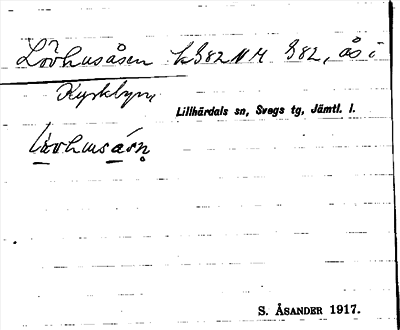 Lövhusåsen h 382 NH 382, ås i
Kyrkbyn,
Lillhärdals sn, Svegs tg, Jämtl. l.
lövhusåsn̥
S. ÅSANDER 1917.